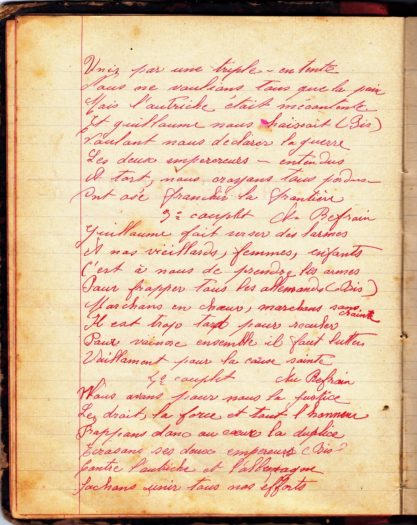 Unis par une triple - entente
Nous ne voulions tous que la paix
Mais l'autriche était mécontente
Et guillaume nous haissait (Bis)
Voulant nous déclarer la guerre
Les deux empereurs - entendus
A tort, nous croyans tous perdus -
Ont osé franchir la frontière
3e couplet Au Refrain
Guillaume fait verser des larmes
A nos vieillards, femmes, enfants
C'est à nous de prendre les armes
Pour frapper tous les allemands (Bis)
Marchons en chœur, marchons sans crainte
Il est trop tard pour reculer
Pour vaincre ensemble il faut lutter
Vaillament pour la cause sainte
4e couplet Au Refrain
Nous avons pour nous la justice
Le droit, la force et tout l'honneur
Frappons donc au cœur la duplice
Ecrasons ses deux empereurs (Bis)
Contre l'autriche et
Sachons unir tous nos efforts